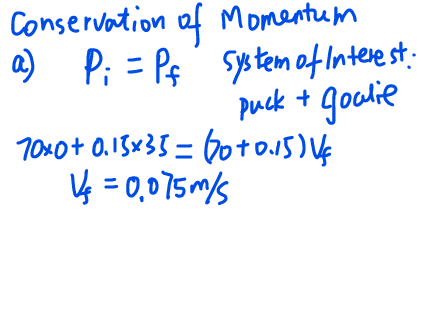 Conservation of Momentum
a) Pi = Pf System of Interest:
puck + goalie
70x0 + 0.15x35 = (70 + 0.15) Vf
Vf = 0.075 m/s